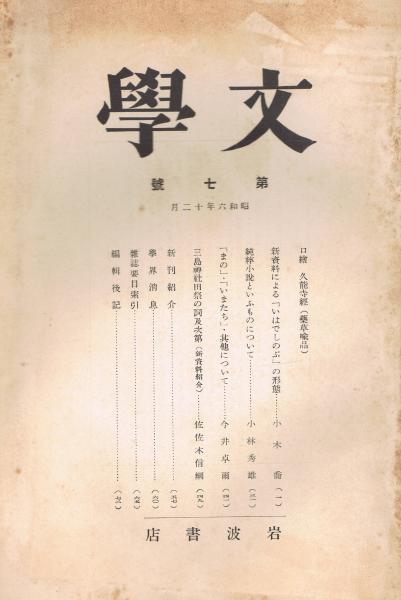 文學
第七號
昭和六年十二月
口繪 久能寺經(藥草喩品)
新資料による「いはでしのぶ」の形態……小木喬(一)
純粹小說といふものについて……小林秀雄
「まの」・「いまたち」・其他について……今井卓爾
三島神社田祭の詞及次第(新資料紹介)……佐佐木信綱
新刊紹介
學界消息
雜誌要目索引
編輯後記
岩波書店